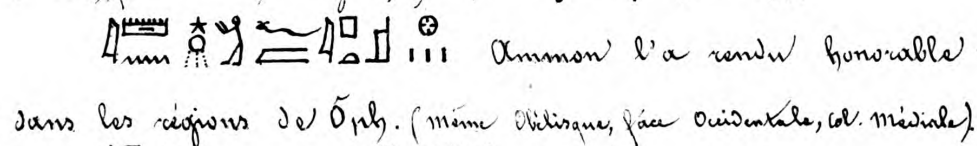 Ammon l'a rendu honorable
dans les régions de Ōph. (même Obélisque, face Occidentale, col. Médiale).